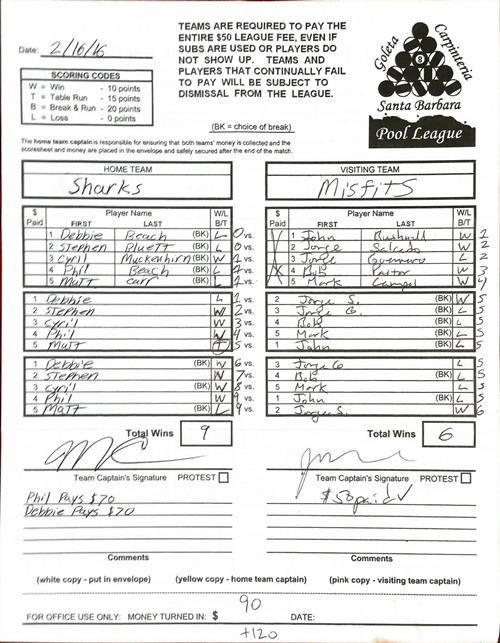 TEAMS ARE REQUIRED TO PAY THE
ENTIRE $50 LEAGUE FEE, EVEN IF
SUBS ARE USED OR PLAYERS DO
NOT SHOW UP. TEAMS AND
PLAYERS THAT CONTINUALLY FAIL
TO PAY WILL BE SUBJECT TO
DISMISSAL FROM THE LEAGUE.
Date: 2/16/16
SCORING CODES
W = Win - 10 points
T = Table Run - 15 points
B = Break & Run - 20 points
L = Loss - 0 points
(BK = choice of break)
Goleta Carpinteria
Santa Barbara
Pool League
The home team captain is responsible for ensuring that both teams' money is collected and the
scoresheet and money are placed in the envelope and safely secured after the end of the match.
HOME TEAM VISITING TEAM
Sharks Misfits
$ Paid Player Name FIRST LAST W/L B/T $ Paid Player Name FIRST LAST W/L B/T
1 Debbie Beach (BK) L 0 vs. 1 John W 1
2 Stephen Bluett (BK) L 0 vs. 2 Jorge Salcedo W 2
3 Cyril Muckenhirn (BK) W 1 vs. 3 Jorge Guerrero L 2
4 Phil Beach (BK) L 1 vs. 4 Bob Pastor W 3
5 Matt Carr (BK) L 1 vs. 5 Mark W 4
1 Debbie L 1 vs. 2 Jorge S. (BK) W 5
2 Stephen W 2 vs. 3 Jorge G. (BK) L 5
3 Cyril W 3 vs. 4 Bob (BK) L 5
4 Phil W 4 vs. 5 Mark (BK) L 5
5 Matt T 5 vs. 1 John (BK) L 5
1 Debbie (BK) W 6 vs. 3 Jorge G L 5
2 Stephen (BK) W 7 vs. 4 Bob (BK) L 5
3 Cyril (BK) W 8 vs. 5 Mark L 5
4 Phil W 9 vs. 1 John (BK) L 5
5 Matt (BK) L 9 vs. 2 Jorge S. W 6
Total Wins 9 Total Wins 6
Team Captain's Signature PROTEST Team Captain's Signature PROTEST
Phil Pays $70 $50 paid
Debbie Pays $70
Comments Comments
(white copy - put in envelope) (yellow copy - home team captain) (pink copy - visiting team captain)
90
FOR OFFICE USE ONLY: MONEY TURNED IN: $ DATE:
+120